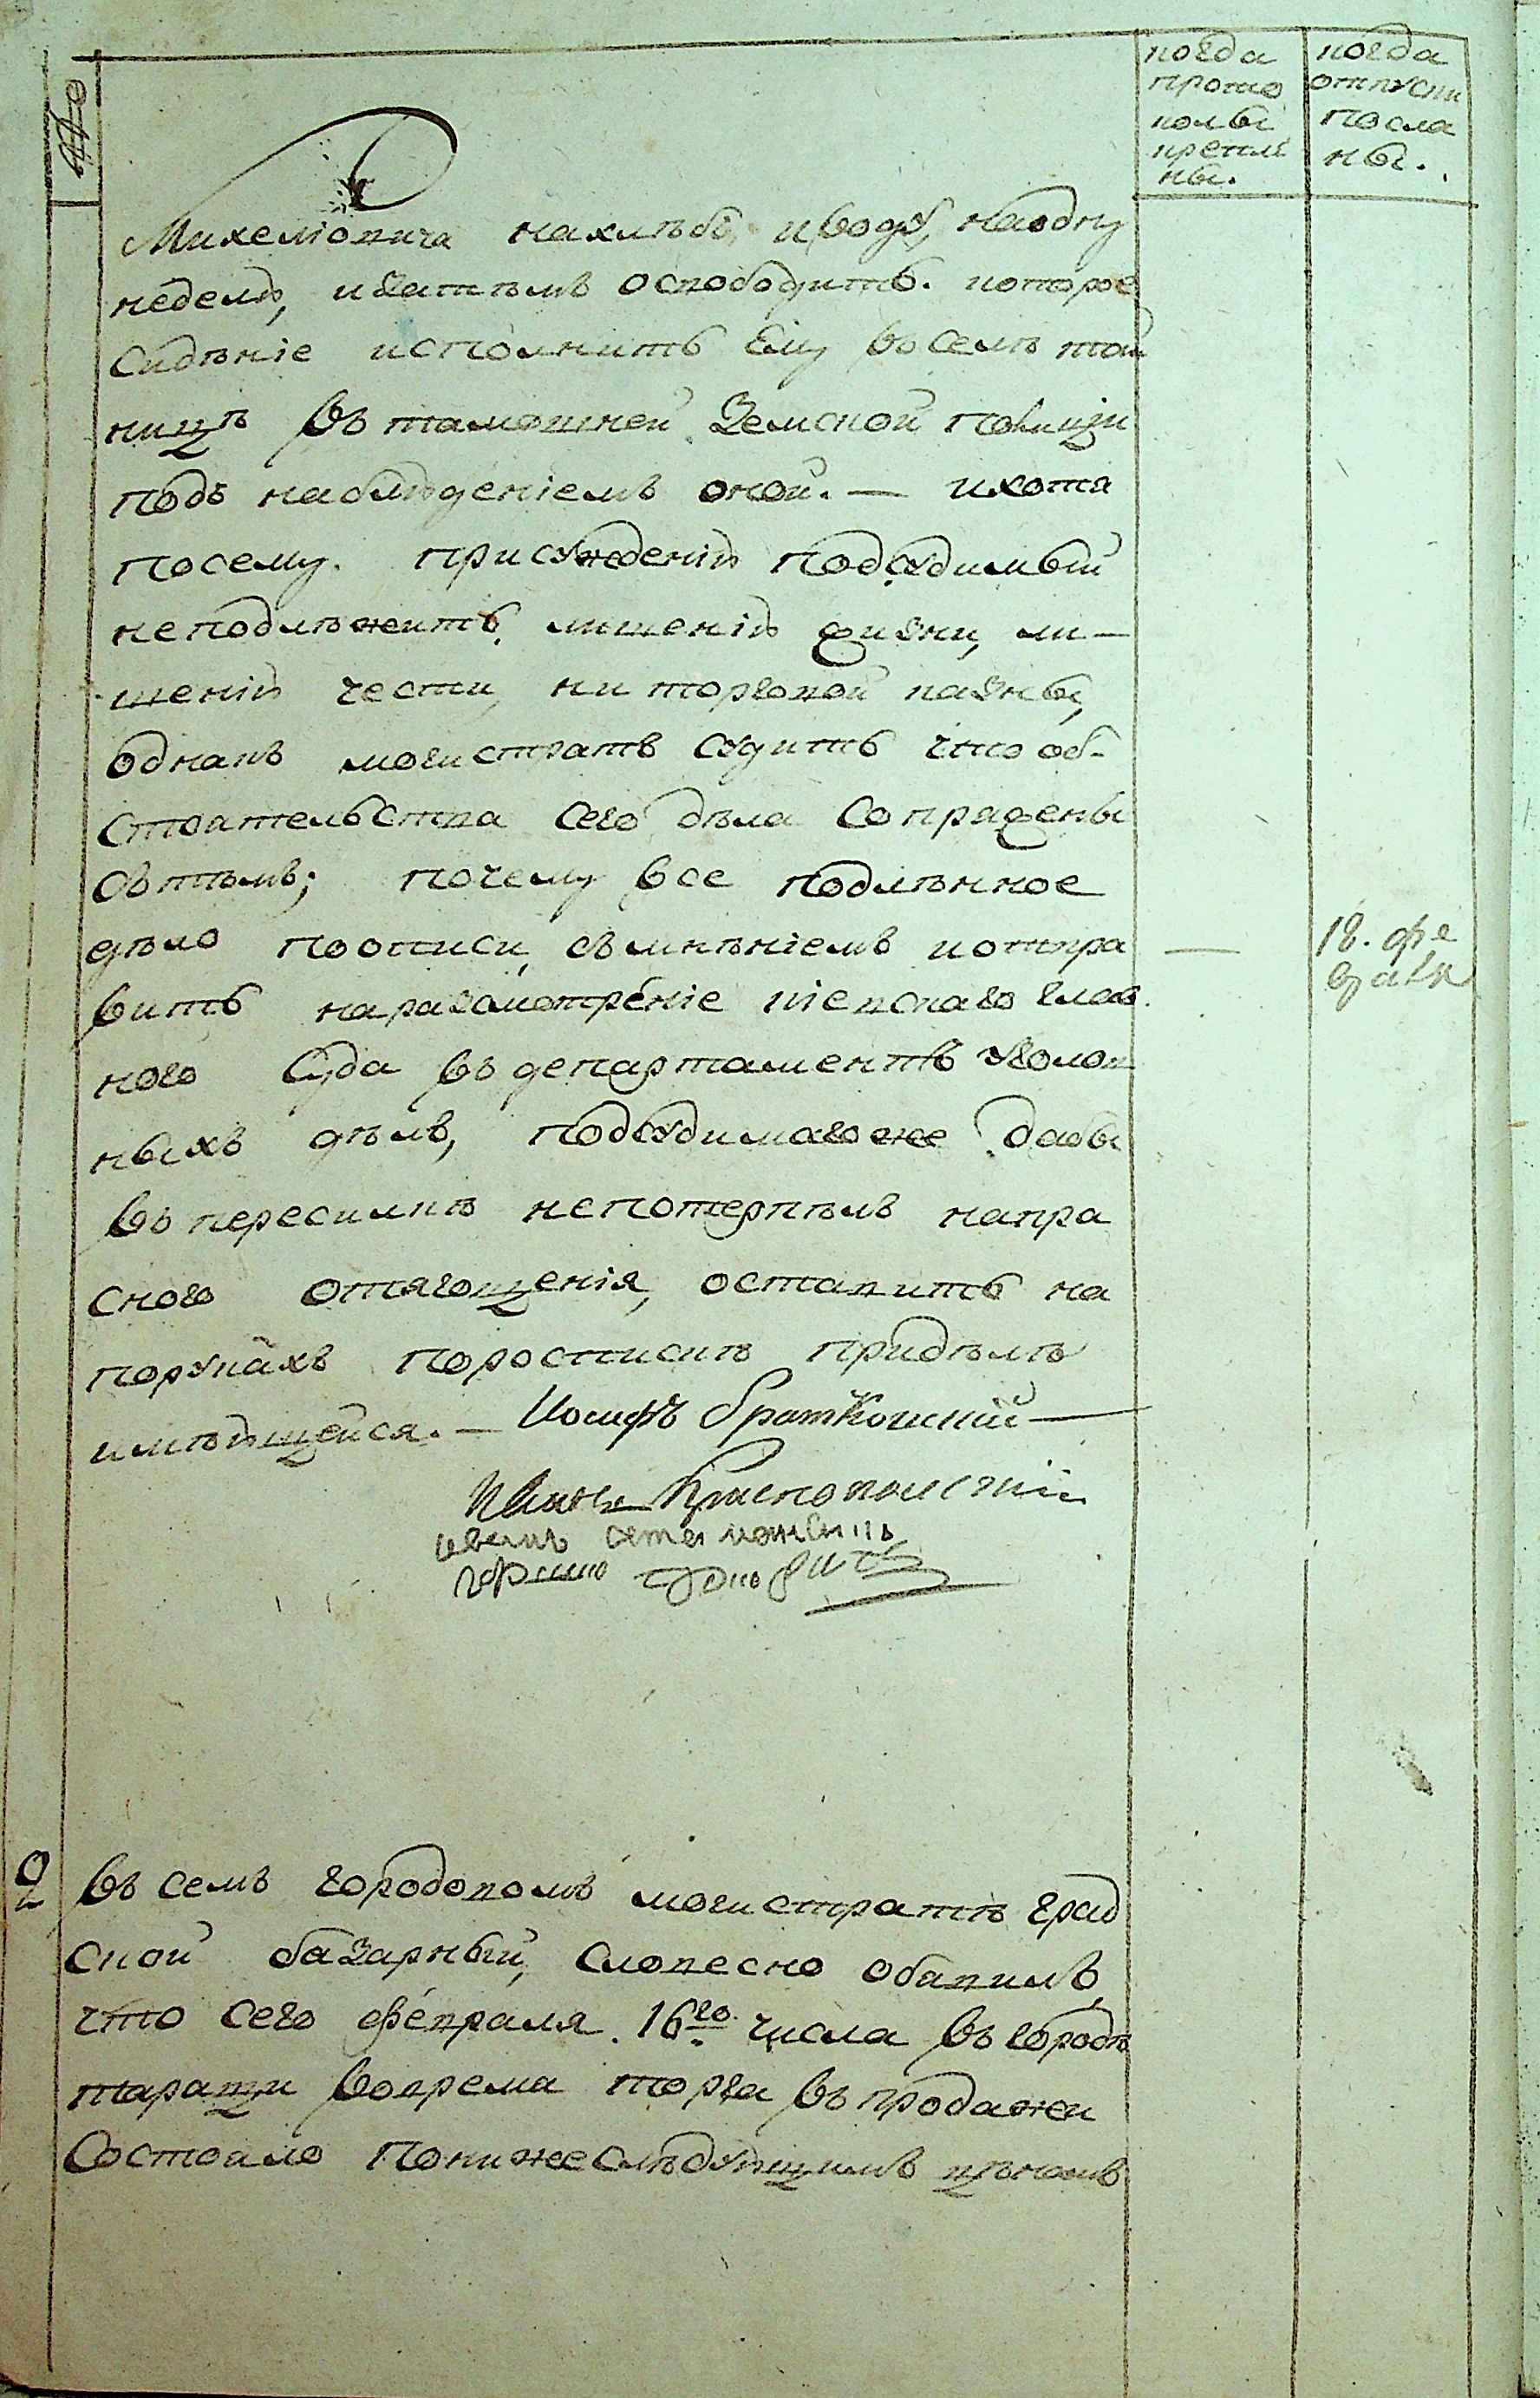 №
когда
прото
колы
крепле
ны.
когда
отпуски
посла
ны.
Михелювича нахлѣбъ, и воду, наодну
неделю, изатѣмъ освободить. которое
Сидѣніе исполнить Ему восемъ той
ницѣ въ тамошней Земской полиціи
подъ наблюденіемъ оной. — ихотя
посему. присужденію подсудимый
неподлѣжитъ, лишенію жизни, ли—
шенію чести, ни торговой казны,
однакъ магистратъ судитъ что об-
стоятельства сего дѣла сопряжены
съ тѣмъ; почему все подлѣнное
дѣло поописи, съмнѣніемъ и отпра
вить наразсмотреніе кіевскаго глав
ного Суда въ департаментъ уголов
ныхъ дѣлъ, подсудимагоже дабы
въ пересилкѣ непотерпѣлъ напра
сного отягощенія, оставить на
порукахъ поросписькѣ придѣлѣ
имѣющейся. — Іосифъ Братковскій —
18. фе
враля
2 въ семъ городовомъ магистратѣ град
ской базарный, словесно обявилъ,
что сего февраля 16го числа въ городѣ
таращи вовремя торга въ продажи
Состояло понижеслѣдующимъ цѣнамъ